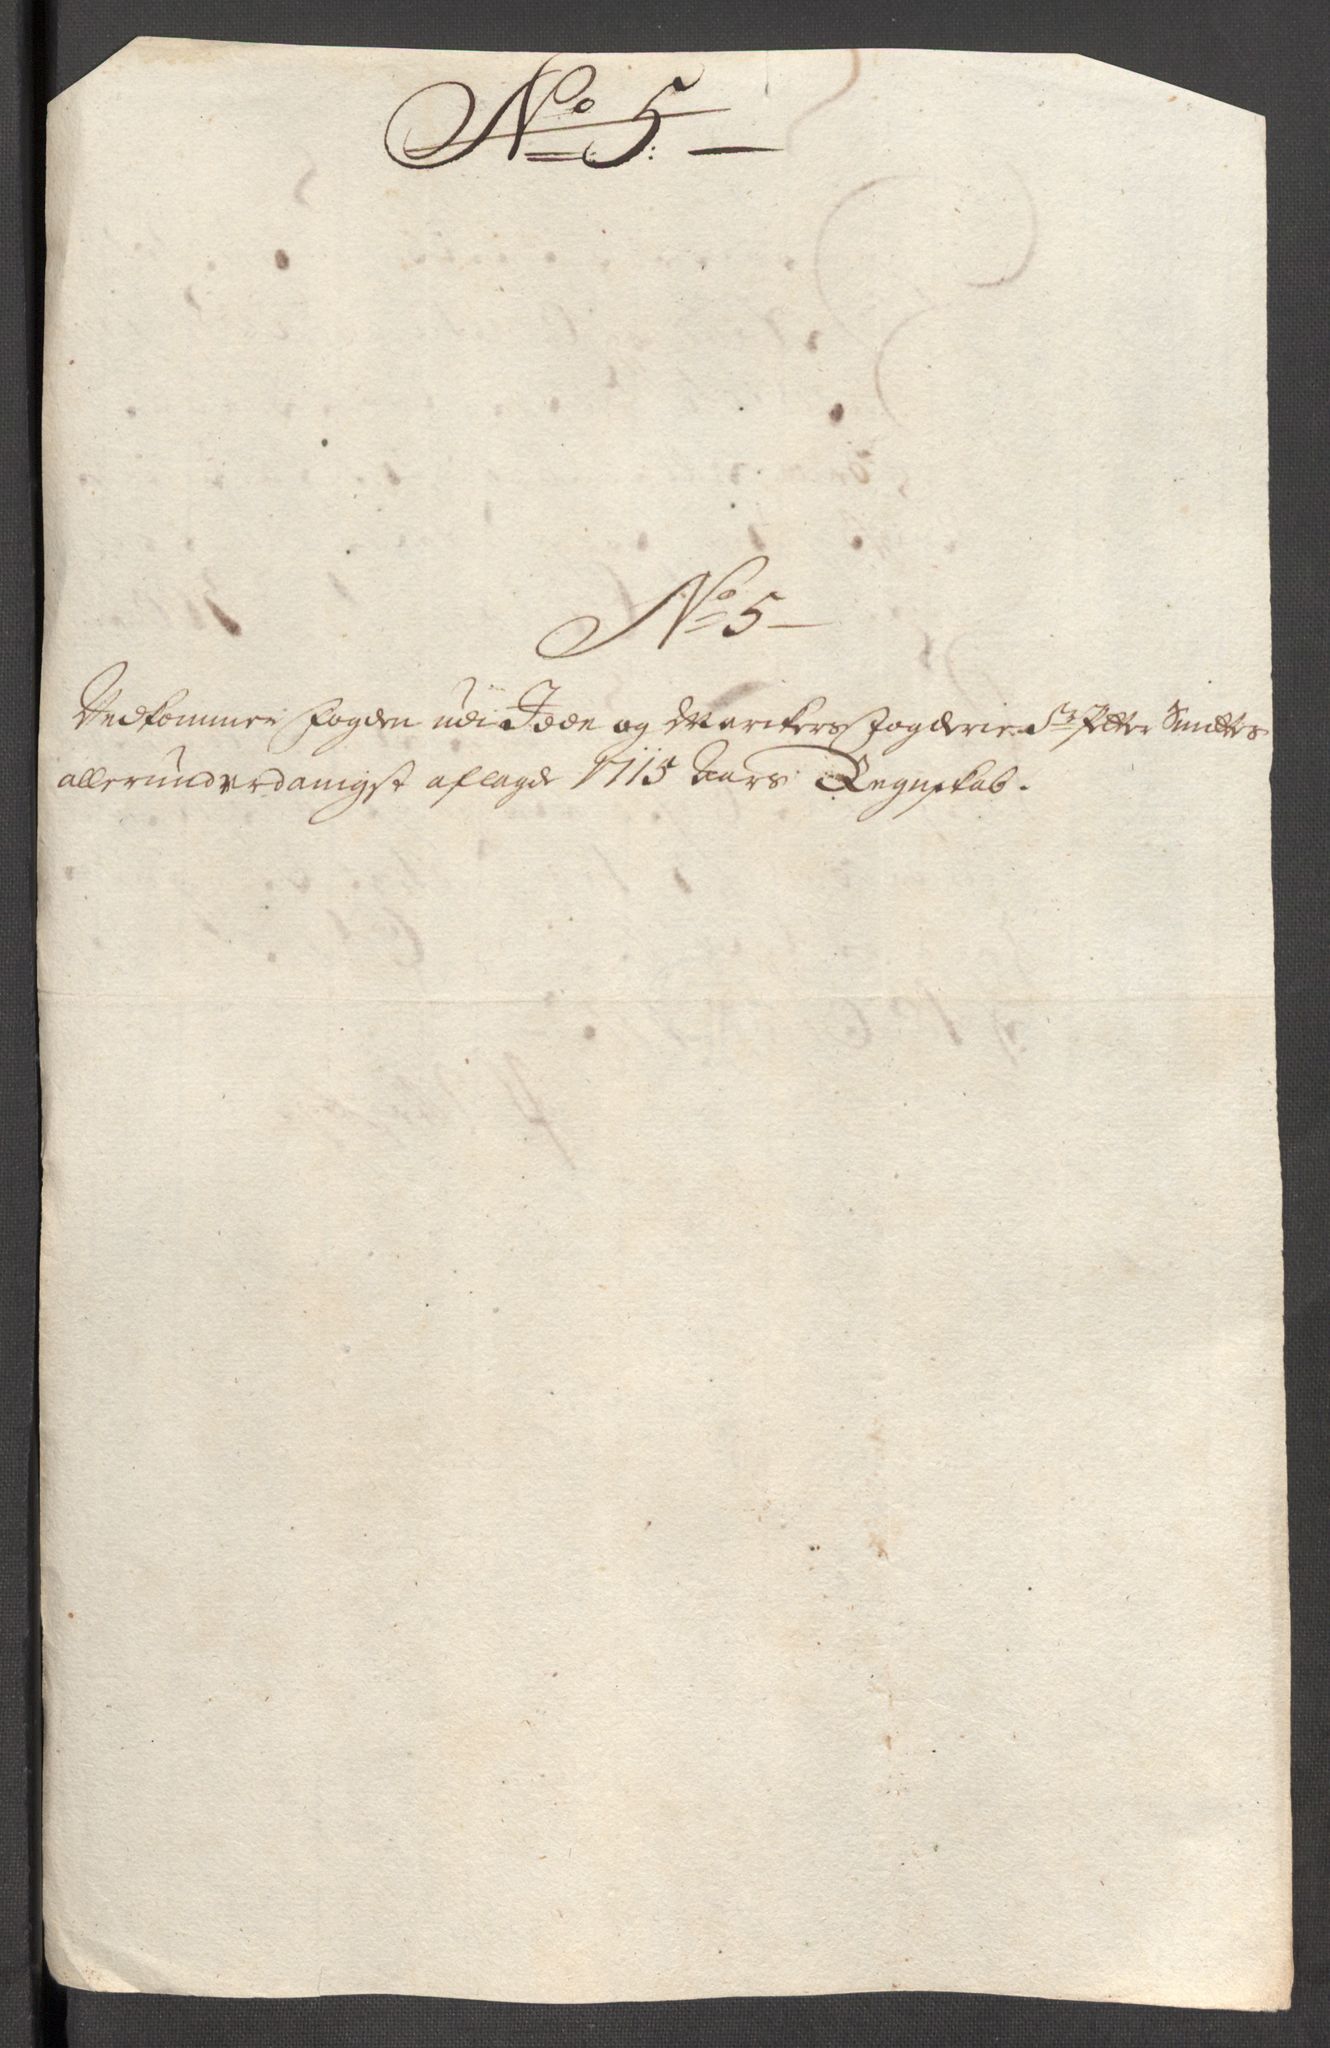 No 5
No 5
Vedkommer fogden udi Idde og Markers fogderie Sr Petter Smiths
allerunderdanigst aflagde 1715 Aars Regnskab.